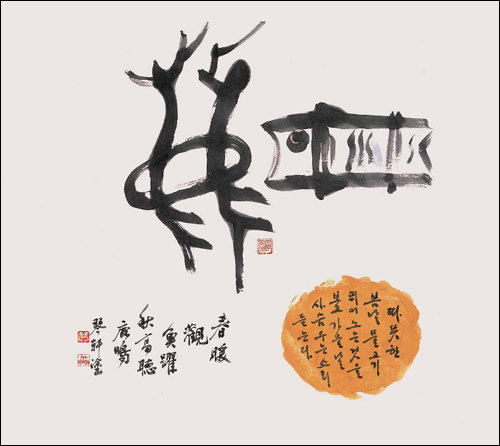 따뜻한
봄날 물고기
뛰어 노는것을
보고 가을날
사슴우는소리
듣는다
春暖
觀
魚躍
秋高聽
鹿鳴
琴軒塗